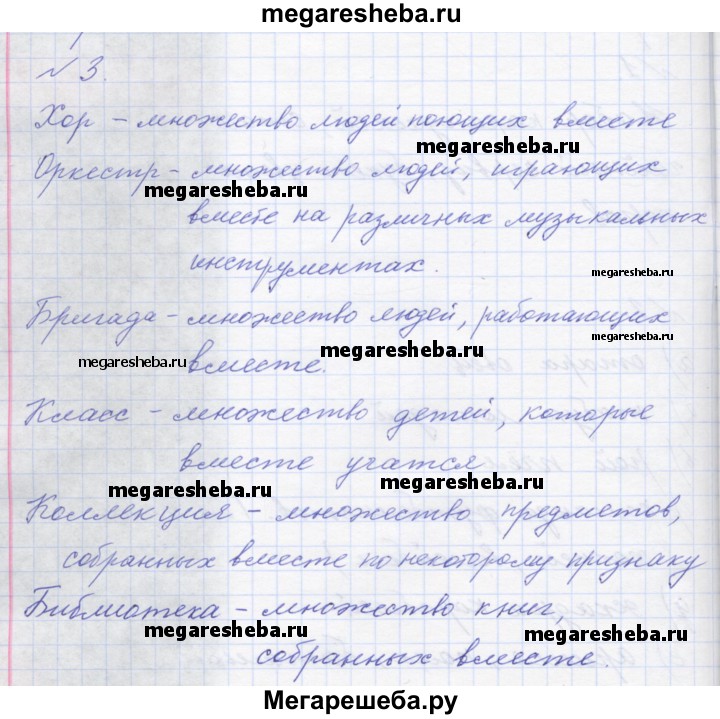 megaresheba.ru
№ 3.
Хор – множество людей поющих вместе
megaresheba.ru
Оркестр – множество людей, играющих
megaresheba.ru
вместе на различных музыкальных
инструментах.
megaresheba.ru
Бригада – множество людей, работающих
megaresheba.ru
megaresheba.ru
вместе.
Класс – множество детей, которые
вместе учатся
megaresheba.ru
megaresheba.ru
Коллекция – множество предметов,
собранных вместе по некоторому признаку
Библиотека – множество книг,
megaresheba.ru
megaresheba.ru
собранных вместе.
Мегарешеба.ру